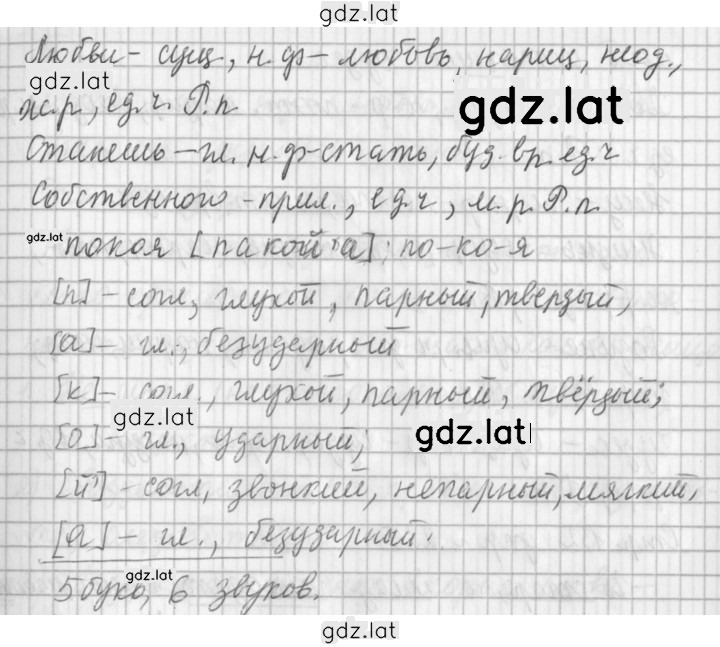 gdz.lat
Любви - сущ, н.ф - любовь, нариц, неод.,
gdz.lat
ж.р, ед.ч. Р.п
gdz.lat
Станешь - гл. н.ф-стать, буд. вр. ед.ч
Собственного - прил., ед.ч, м.р. Р.п.
gdz.lat
покоя [пакой'а]: по-ко-я
[п] - согл, глухой, парный, твердый,
[а] - гл., безударный
[к] - согл., глухой, парный, твёрдый;
gdz.lat
[о] - гл., ударный;
gdz.lat
[й'] - согл, звонкий, непарный, мягкий,
[а] - гл., безударный.
gdz.lat
5 букв, 6 звуков.
gdz.lat